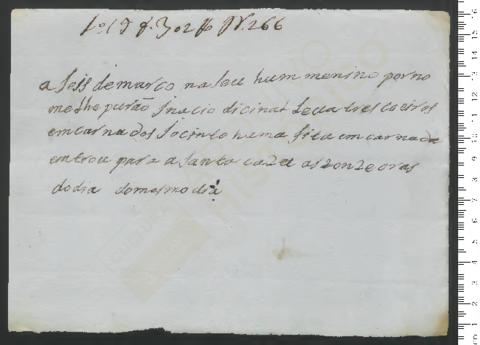 Lº 19 f. 302 Nº 266
a seis de marco naseu hum menino por no
me lhe purão Inacio dicinal Leva tres coeiros
emcarnados So cinto huma fita emcarnada
entrou para a Santa caza as onze oras
do dia do mesmo dia